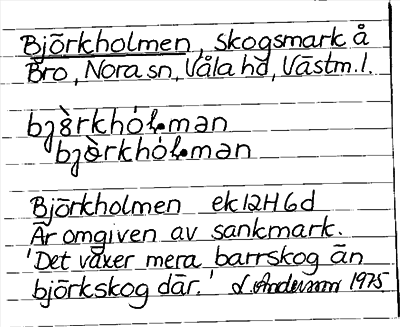 Björkholmen, skogsmark å
Bro, Nora sn, Våla hd, Västm.l.
bjὸ̈rkhólman
bjὸ̈rkhólman
Björkholmen ek 12H6d
Är omgiven av sankmark.
'Det växer mera barrskog än
björkskog där.' L. Anderson 1975